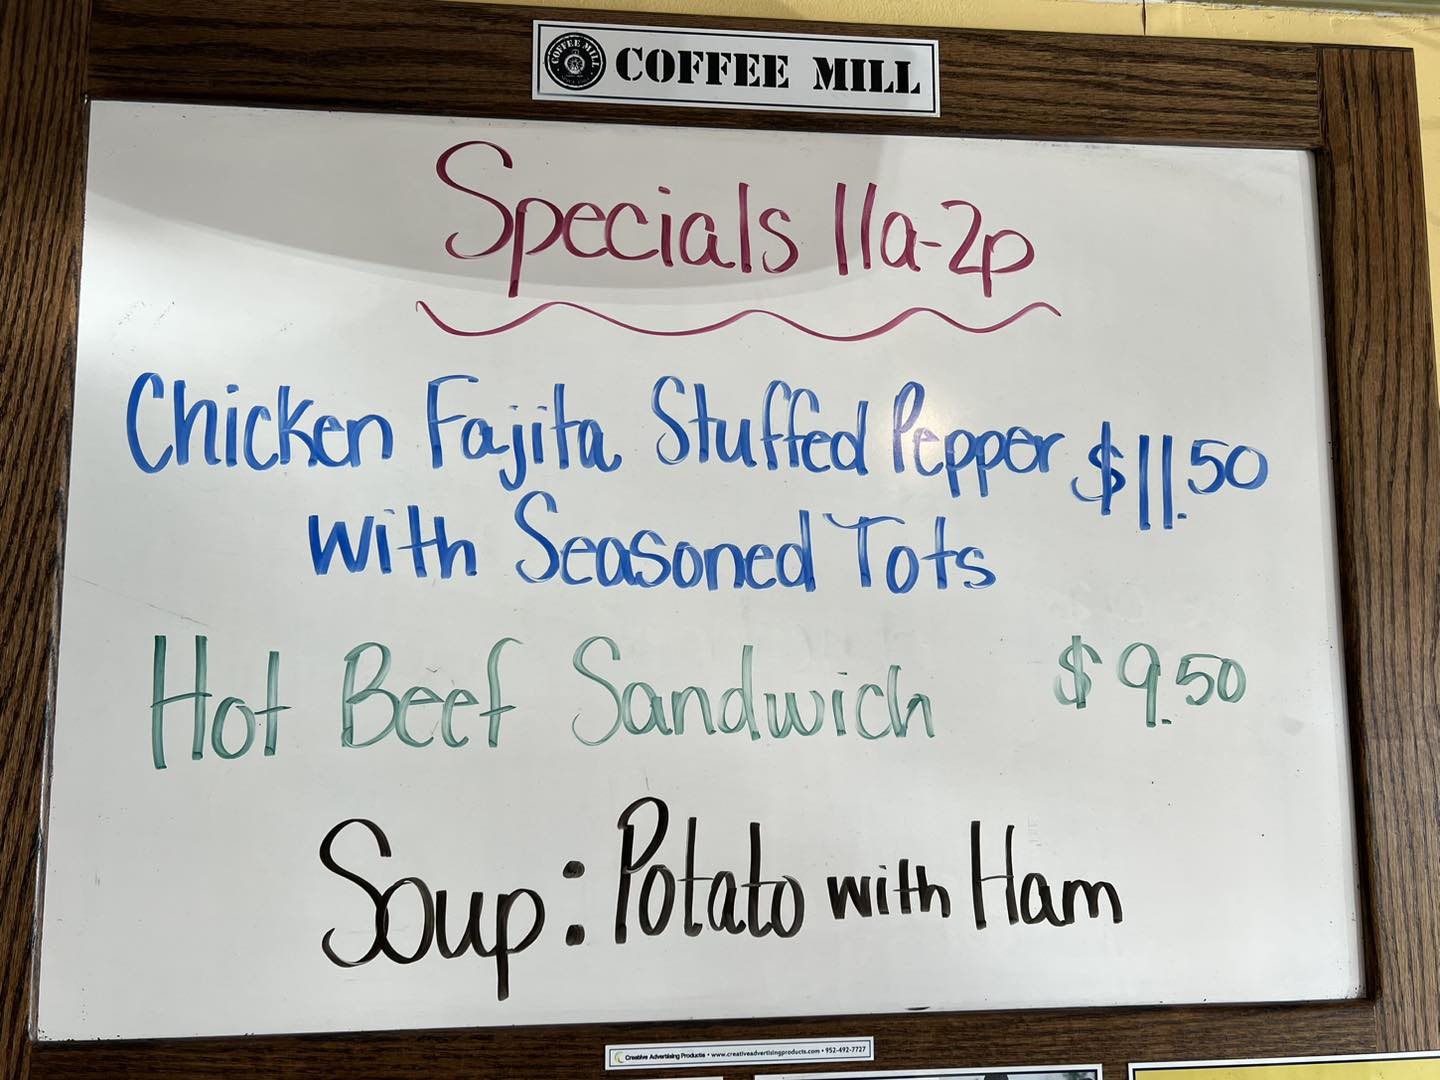 COFFEE MILL
COFFEE MILL
Specials 11a-2p
Chicken Fajita Stuffed Pepper $11.50
with Seasoned Tots
Hot Beef Sandwich $9.50
Soup: Potato with Ham
Creative Advertising Products • www.creativeadvertisingproducts.com • 952-492-7727